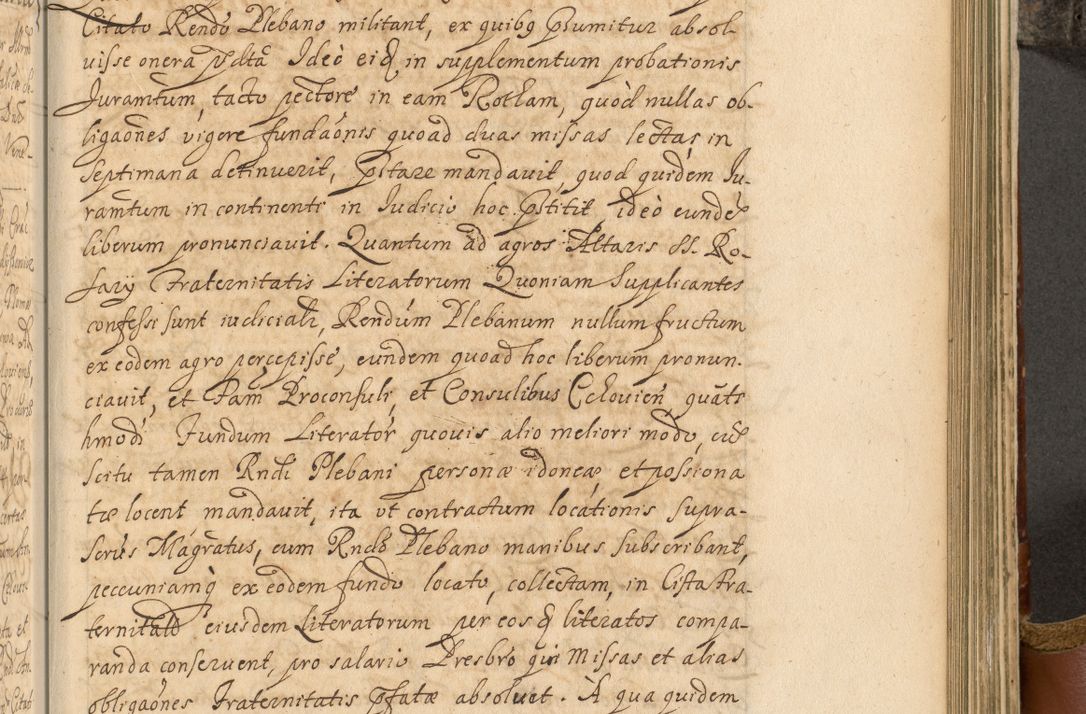 Citato Rendo Plebano militant, ex quibg psumitur absol-
uisse onera pdta Ideò eid in supplementum probationis
Juramtum, tacto pectore in eam Rotham, quòd nullas ob-
ligaões vigere fundaõnis quoad duas missas lectas in
Septimana detinuerit, pstare mandauit, quod quidem Ju-
ramtum in continenti in Iudicio hoc pstitit, ideò eunde
liberum pronunciauit. Quantum ad agros Altaris SS. Ro-
sary Fraternitatis Literatorum Quoniam Supplicantes
confessi sunt iudicialr, Rendum Plebanum nullum fructum
ex eodem agro percepisse, eundem quoad hoc liberum pronun.
ciauit, et Fam Proconsuli, et Consulibus Cclouien quats
hmodi Fundum Literator quouis alio meliori modo, cu
scitu tamen Rndi Plebani personæ idoneæ, et possiona
tæ locent mandauit, ita vt contractum locationis supra-
scrius Magratus, cum Rndo Plebano manibus subscribant,
peccuniamq ex eodem fundo locato, collectam, in Cista Fra-
ternitatis eiusdem Literatorum per eos d literatos compa-
randa conseruent, pro salario Presbro qui Missas et alias
obligaões Fraternitatis pfatæ absoluet. A qua quidem